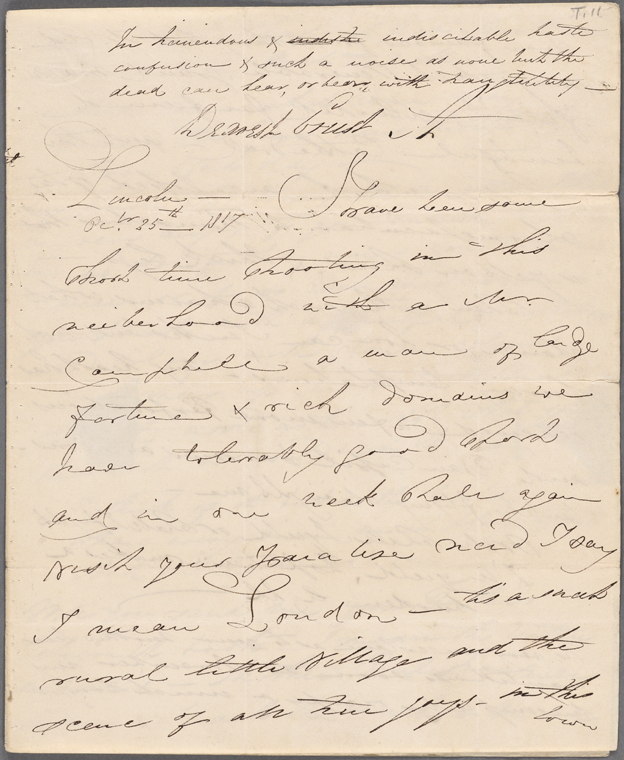 T.11
In tremendous & indiscribable haste
confusion & such a noise as none but the
dead can hear, or bear, with tranquility —
Dearest
Lincoln —
Octbr 25th 1817
I have been some
short time shooting in this
neiberhood with a Mr.
Campbell a man of large
fortune & rich domains we
have tolerably good sport
and in one week shall again
visit your Paradise need I say
I mean London — tis a snak
rural little village and the
scene of all true joys — in this
town